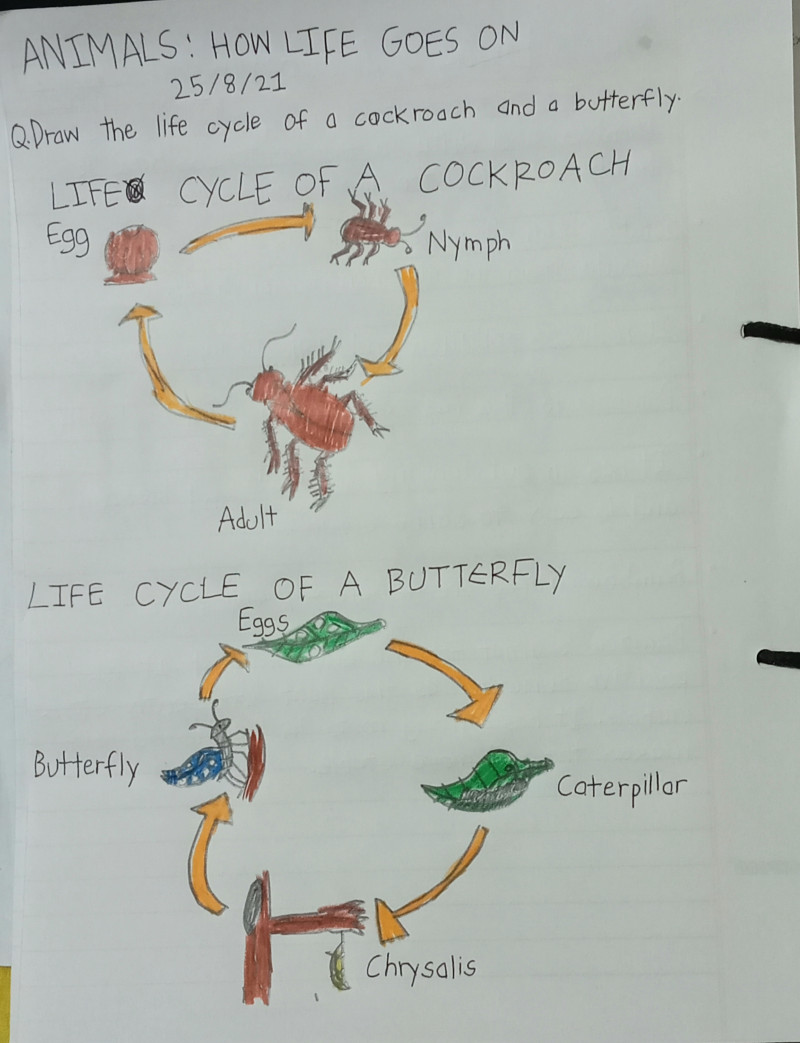 ANIMALS: HOW LIFE GOES ON
25/8/21
Q.Draw the life cycle of a cockroach and a butterfly.
LIFE CYCLE OF A COCKROACH
Egg
Nymph
Adult
LIFE CYCLE OF A BUTTERFLY
Eggs
Butterfly
Caterpillar
Chrysalis